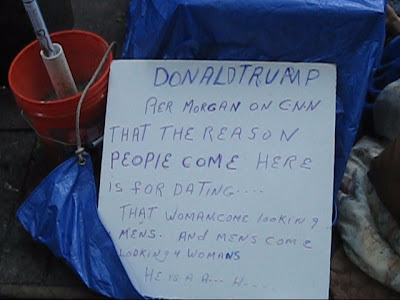 DONALD TRUMP
PER MORGAN ON CNN
THAT THE REASON
PEOPLE COME HERE
IS FOR DATING....
THAT WOMAN COME LOOKING 4
MENS. AND MENS COME
LOOKING 4 WOMANS
HE IS A A... H....